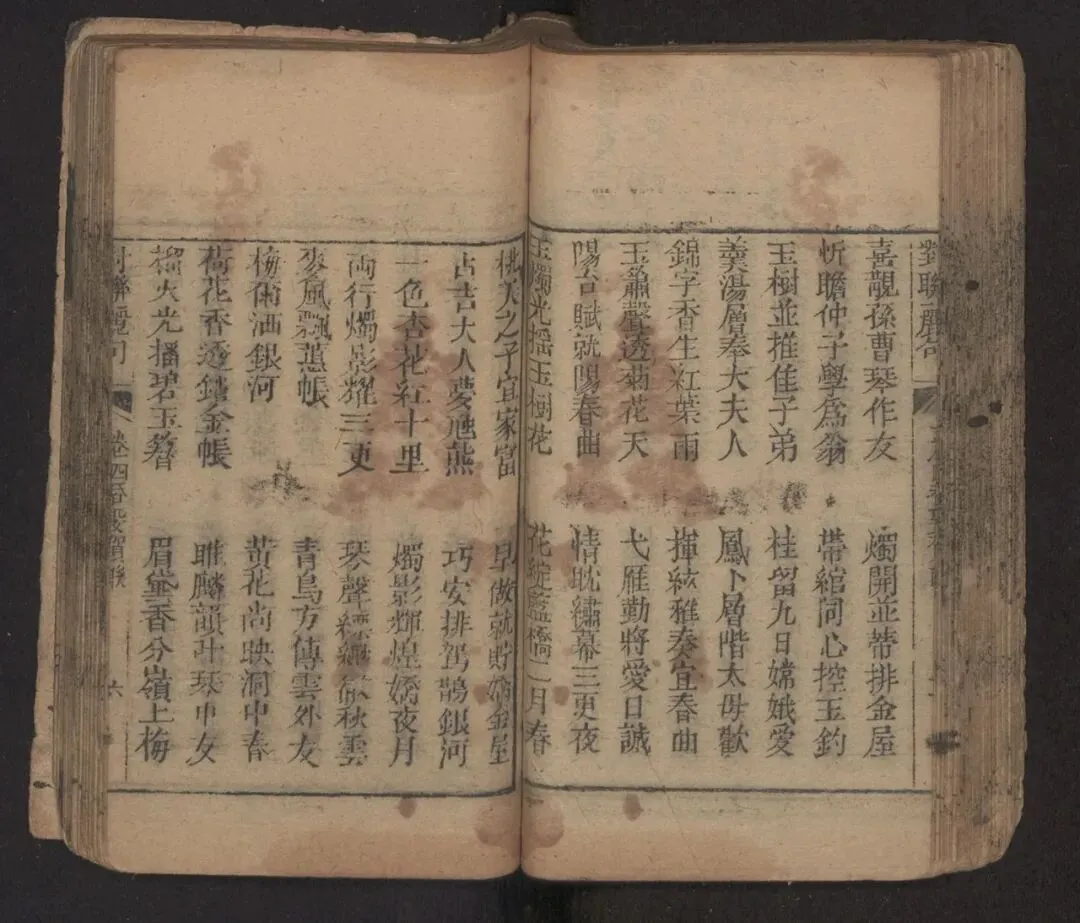 對聯麗句
嘉靚孫曹琴作友 燭開並蒂排金屋
忻瞻仲子學為翁 帶綰同心控玉鈎
玉樹並推佳子弟 桂留九日嫦娥愛
羮湯層奉大夫人 鳳卜層階太母歡
錦字香生紅葉雨 揮絃雅奏宜春曲
玉簫聲透菊花天 弋雁勤將愛日誠
陽台賦就陽春曲 情耽繡幕三更夜
玉燭光摇玉樹花 花綻藍橋二月春
桃夭之子宜家富 早做就貯嬌金屋
占吉大人夢虺熊 巧安排駕鵲銀河
一色杏花紅十里 燭影輝煌嬌夜月
両行燭影耀三更 琴聲 秋雲
麥風飄蕙帳 青鳥方傳雲外友
梅雨洒銀河 黃花尚映洞中春
荷花香透銷金帳 睢麟韻叶琴中女
榴火光搖碧玉簪 眉黛香分嶺上梅
對聯麗句 卷四 賀 六